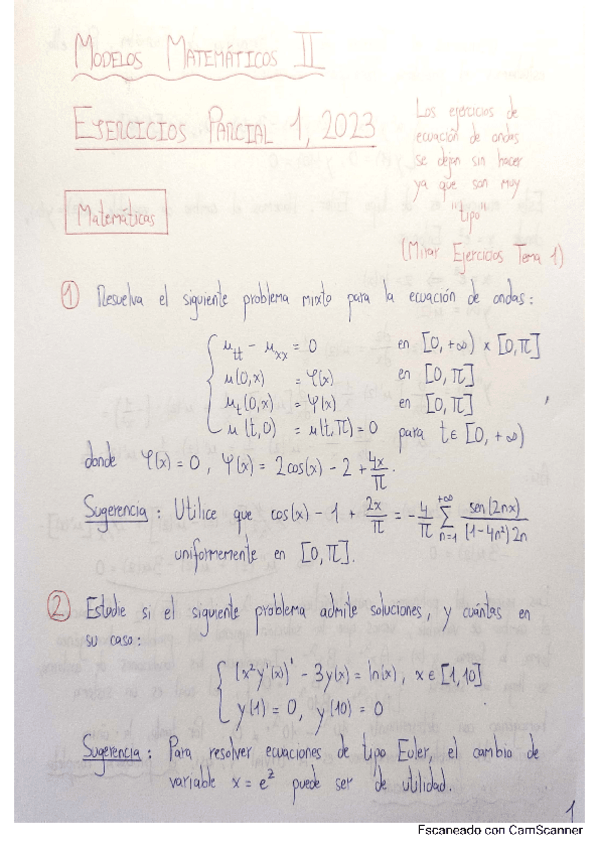 MODELOS MATEMÁTICOS II
EJERCICIOS PARCIAL 1, 2023
Los ejercicios de
ecuación de ondas
se dejan sin hacer
ya que son muy
"tipo"
(Mirar Ejercicios Tema 1)
Matemáticas
① Resuelva el siguiente problema mixto para la ecuación de ondas:
u_tt - u_xx = 0 en [0,+∞) x [0,π]
u(0,x) = φ(x) en [0,π]
u_t(0,x) = ψ(x) en [0,π]
u(t,0) = u(t,π) = 0 para t ∈ [0,+∞)
donde φ(x) = 0, ψ(x) = 2cos(x) - 2 + 4x/π.
Sugerencia: Utilice que cos(x) - 1 + 2x/π = -4/π ∑_{n=1}^{+∞} sen(2nx)/((1-4n²)2n)
uniformemente en [0,π].
② Estudie si el siguiente problema admite soluciones, y cuántas en
su caso:
(x²y'(x))' - 3y(x) = ln(x), x ∈ [1,10]
y(1) = 0, y(10) = 0
Sugerencia: Para resolver ecuaciones de tipo Euler, el cambio de
variable x = e^z puede ser de utilidad.
1
Escaneado con CamScanner